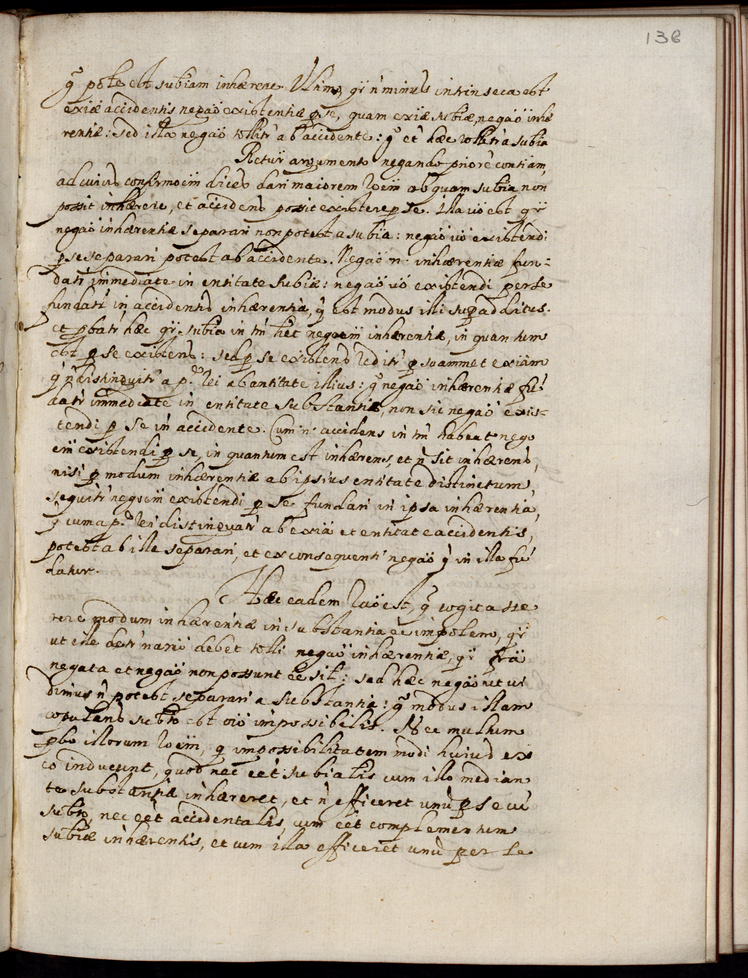 136
q̃ pot̃e est subiam inhærere. Ultimo, q̃ n̄ minus intrinseca est
exiæ accidentis negaõ existentiæ p̱ se, quam exiæ subiæ, negaõ inhæ
rentiæ: sed illa negaõ tollitr̃ ab accidente: q̃ et hæc tolletr̃ a subia
Rr̃etur argumento negando priorẽ contiam,
ad cuius confirmoẽm dices dari maiorem roẽm ob quam subia non
possit inhærere, et accidens possit existere p̱ se. Illa ṽo est q̃
negaõ inhærentiæ separari non potest a subia: negaõ ṽo existendi
p̱ se separari potest ab accidente. Negaõ n̄. inhærentiæ fun-
datr̃ immediate in entitate subiæ: negaõ ṽo existendi per se
fundatr̃ in accidentis inhærentia, q̃ est modus illi sup̱additus.
et p̱batr̃ hæc q̃ subia in tm̃ hẽt negoẽm inhærentiæ, in quantum
est p̱ se existens: sed p̱ se existens redditr̃ p̱ suammet exiam
q̃ n̄ distinguitr̃ a p.ᵗᵉ rei ab entitate illius: q̃ negaõ inhærentiæ fũ
datr̃ immediate in entitate substantiæ, non sic negaõ exis-
tendi p̱ se in accidente. Cum n̄. accidens in tm̃ habeat nego
ẽm existendi p̱ se, in quantum est inhærens, et n̄ sit inhærens,
nisi p̱ modum inhærentiæ ab ipsius entitate distinctum,
sequitr̃ negoẽm existendi p̱ se fundari in ipsa inhærentia,
q̃ cum a p.ᵗᵉ rei distinguatr̃ ab exia et entitate accidentis,
potest ab illo separari, et ex consequenti negaõ q̃ in illa fũ
datur.
Hæc eadem raõ est, q̃ cogit asse
rere modum inhærentiæ in substantia eẽ imposs̃lem, q̃
ut ille detr̃ nario debet tolli negaõ inhærentiæ, q̃ fr̃a
negata et negaõ non possunt eẽ sil̃: sed hæc negaõ ut vi
dimus n̄ potest separari a substantia: q̃ modus illam
 est oĩo impossibilis. Nec multum
p̱bo illorum roẽm, q̃ impossibilitatem modi huius ex
eo inducunt, quod nec eẽt subialis cum illo median
te substantia inhæreret, et n̄ efficeret unũ p̱ se cũ
subto, nec eẽt accidentalis, cum eẽt complementum
subiæ inhærentis, et cum illa efficeret unũ per se